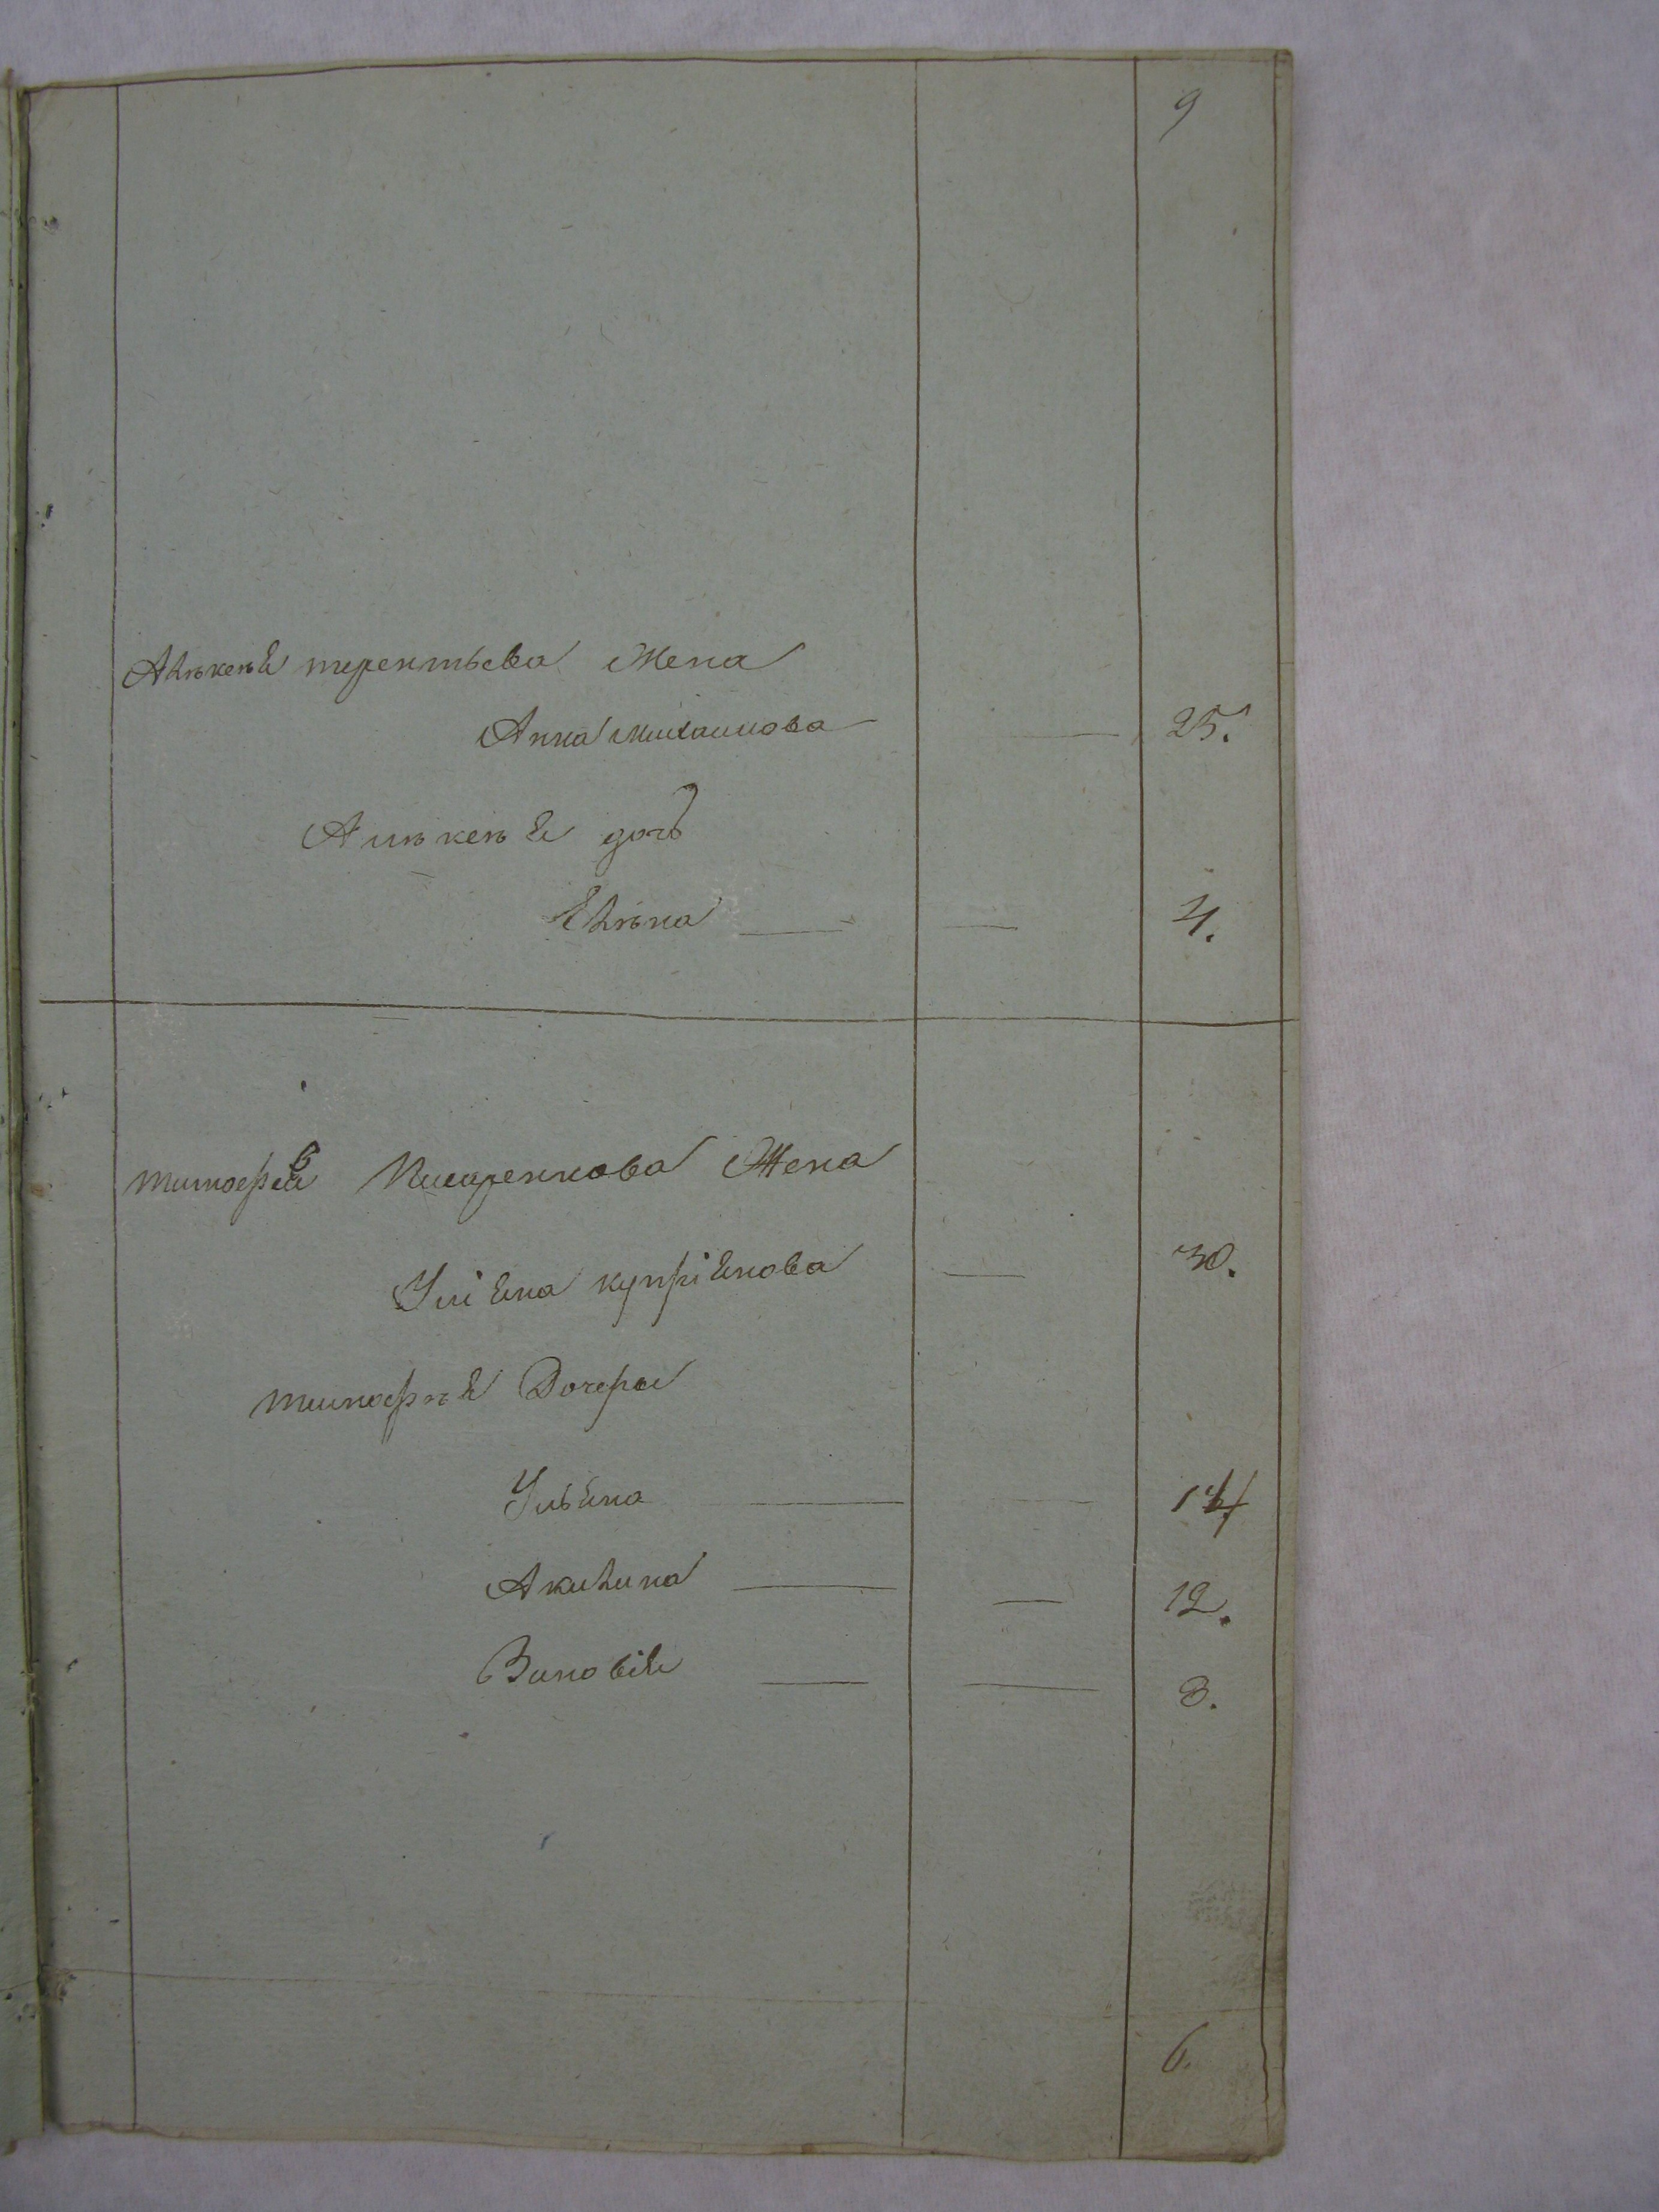 9
Алѣкеѣя терентьева Жена
Анна михаилова 25.
Алѣкеѣя дочь
Елѣна 4.
тимофея Писаренкова Жена
Улiяна купрiянова 30.
тимофѣя Дочери
Ульяна 14
Акилина 12.
Зиновiя 3.
6.